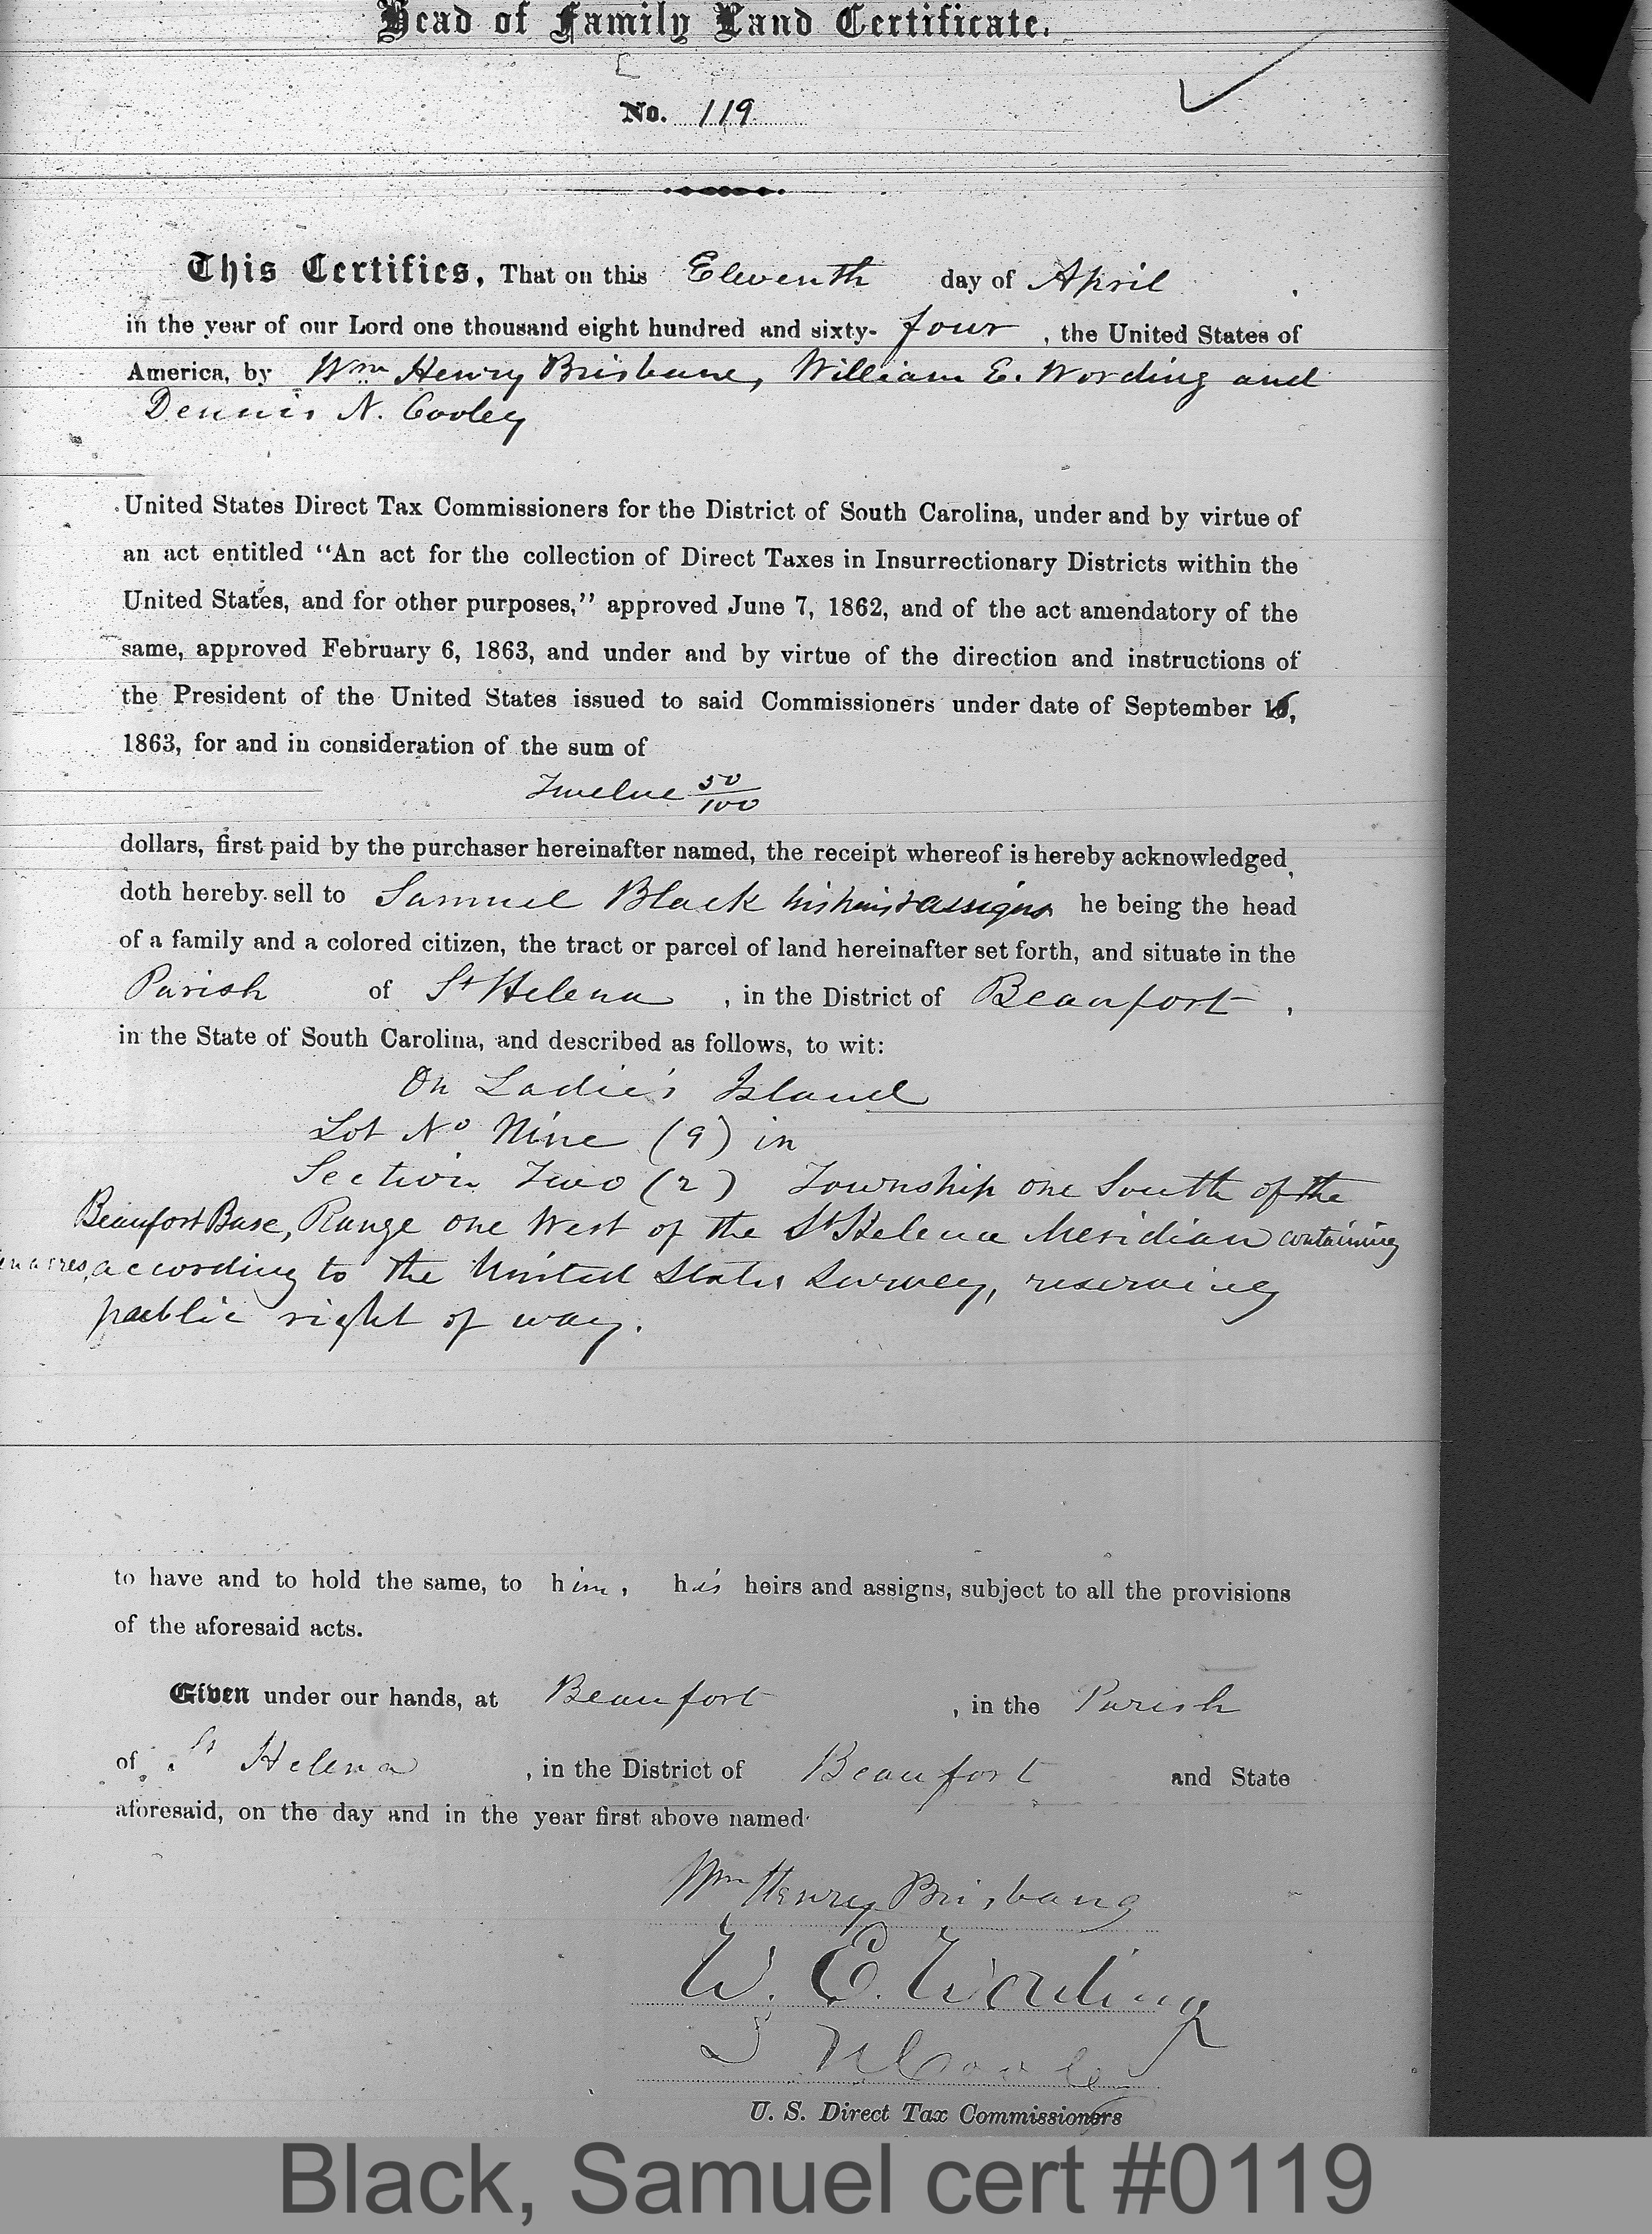 Head of Family Land Certificate.
No. 119
This Certifies, That on this Eleventh day of April
in the year of our Lord one thousand eight hundred and sixty- four , the United States of
America, by Wm Henry Brisbane, William E. Wording and
Dennis N. Cooley
United States Direct Tax Commissioners for the District of South Carolina, under and by virtue of
an act entitled “An act for the collection of Direct Taxes in Insurrectionary Districts within the
United States, and for other purposes,” approved June 7, 1862, and of the act amendatory of the
same, approved February 6, 1863, and under and by virtue of the direction and instructions of
the President of the United States issued to said Commissioners under date of September 16,
1863, for and in consideration of the sum of
Twelve 50/100
dollars, first paid by the purchaser hereinafter named, the receipt whereof is hereby acknowledged,
doth hereby sell to Samuel Black his heirs & assigns he being the head
of a family and a colored citizen, the tract or parcel of land hereinafter set forth, and situate in the
Parish of St Helena , in the District of Beaufort ,
in the State of South Carolina, and described as follows, to wit:
On Ladie's Island
Lot No Nine (9) in
Section Two (2) Township one South of the
Beaufort Base, Range one West of the St Helena Meridian containing
acres, according to the United States Survey, reserving
public right of way.
to have and to hold the same, to him, his heirs and assigns, subject to all the provisions
of the aforesaid acts.
Given under our hands, at Beaufort , in the Parish
of St Helena , in the District of Beaufort and State
aforesaid, on the day and in the year first above named
Wm Henry Brisbane
W. E. Wording
D N Cooley
U. S. Direct Tax Commissioners
Black, Samuel cert #0119